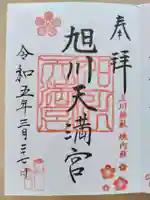 奉拝
上川神社境内社
旭川天満宮
令和五年三月二十七日